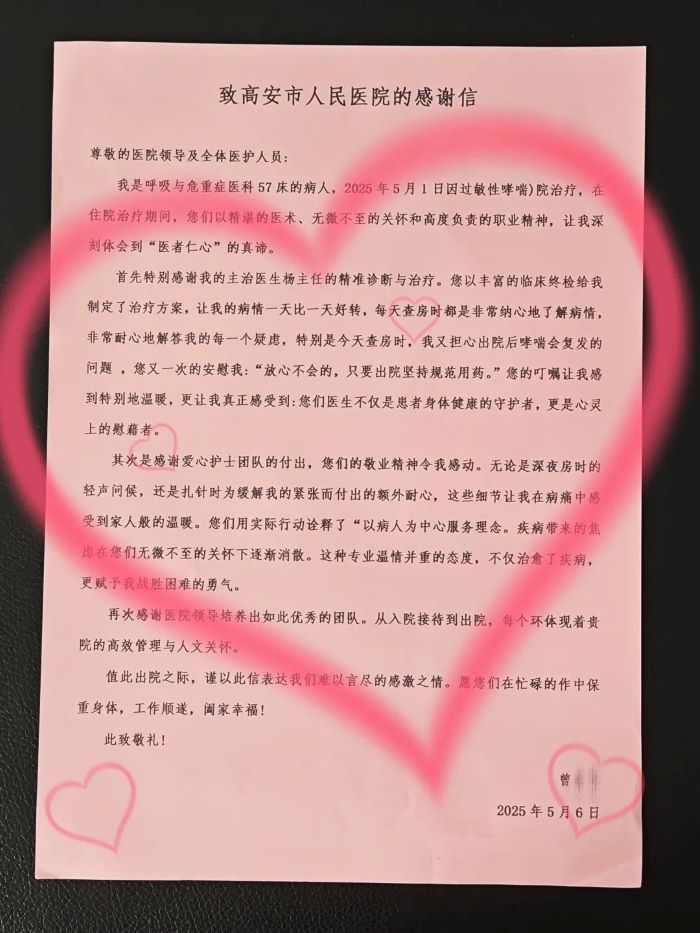 致高安市人民医院的感谢信
尊敬的医院领导及全体医护人员：
我是呼吸与危重症医科57床的病人，2025年5月1日因过敏性哮喘)院治疗，在
住院治疗期间，您们以精湛的医术、无微不至的关怀和高度负责的职业精神，让我深
刻体会到“医者仁心”的真谛。
首先特别感谢我的主治医生杨主任的精准诊断与治疗。您以丰富的临床终检给我
制定了治疗方案，让我的病情一天比一天好转，每天查房时都是非常纳心地了解病情，
非常耐心地解答我的每一个疑虑，特别是今天查房时，我又担心出院后哮喘会复发的
问题 ，您又一次的安慰我：“放心不会的，只要出院坚持规范用药。”您的叮嘱让我感
到特别地温暖，更让我真正感受到：您们医生不仅是患者身体健康的守护者，更是心灵
上的慰藉者。
其次是感谢爱心护士团队的付出，您们的敬业精神令我感动。无论是深夜房时的
轻声问候，还是扎针时为缓解我的紧张而付出的额外耐心，这些细节让我在病痛中感
受到家人般的温暖。您们用实际行动诠释了“以病人为中心服务理念。疾病带来的焦
虑在您们无微不至的关怀下逐渐消散。这种专业温情并重的态度，不仅治愈了疾病，
更赋予我战胜困难的勇气。
再次感谢医院领导培养出如此优秀的团队。从入院接待到出院，每个环体现着贵
院的高效管理与人文关怀。
值此出院之际，谨以此信表达我们难以言尽的感激之情。愿您们在忙碌的作中保
重身体，工作顺遂，阖家幸福！
此致敬礼！
曾
2025年5月6日